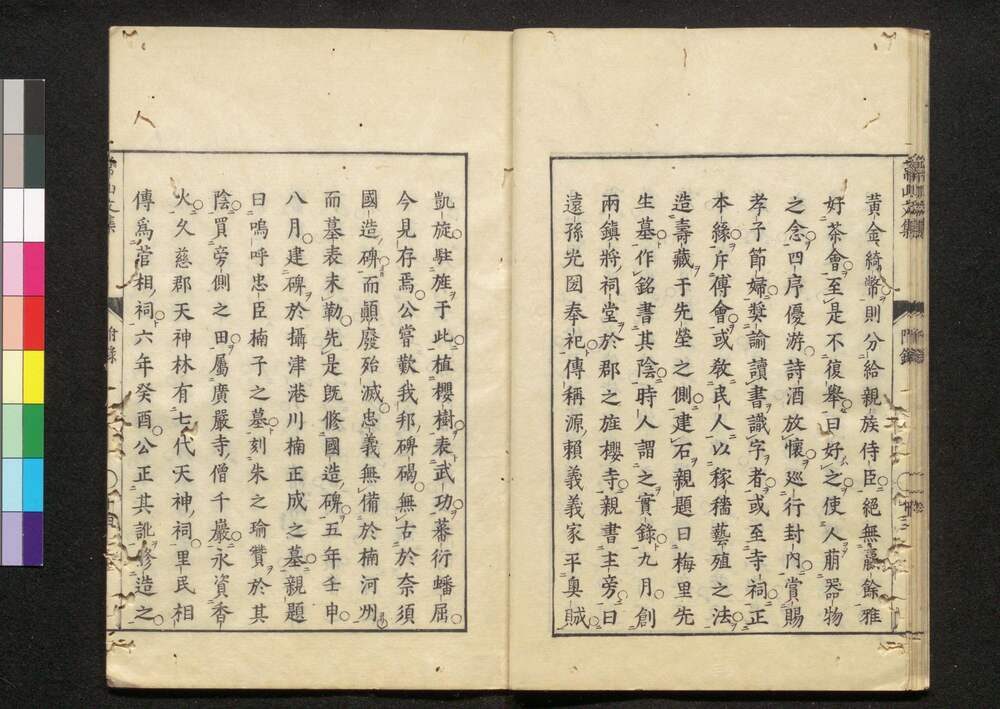 黄金綺幣則分給親族侍臣絕無贏餘雅
好茶會至是不復舉曰好之使人萠器物
之念四序優游詩酒放懷巡行封內賞賜
孝子節婦奬諭讀書識字者或至寺祠正
本緣斥傅會或教民人以稼穡藝殖之法
造壽藏于先塋之側建石親題曰梅里先
生墓作銘書其陰時人謂之實錄九月創
兩鎮將祠堂於郡之旌櫻寺親書主旁曰
遠孫光圀奉祀傳稱源賴義義家平奥賊
凱旋駐旌于此植櫻樹表武功蕃衍蟠屈
今見存焉公嘗歎我邦碑碣無古於奈須
國造碑而顛廢殆滅忠義無備於楠河州
而墓表未勒先是既修國造碑五年壬申
八月建碑於攝津港川楠正成之墓親題
曰嗚呼忠臣楠子之墓刻朱之瑜贊於其
陰買旁側之田屬廣嚴寺僧千巖永資香
火久慈郡天神林有七代天神祠里民相
傳爲菅相祠六年癸酉公正其訛修造之
附錄